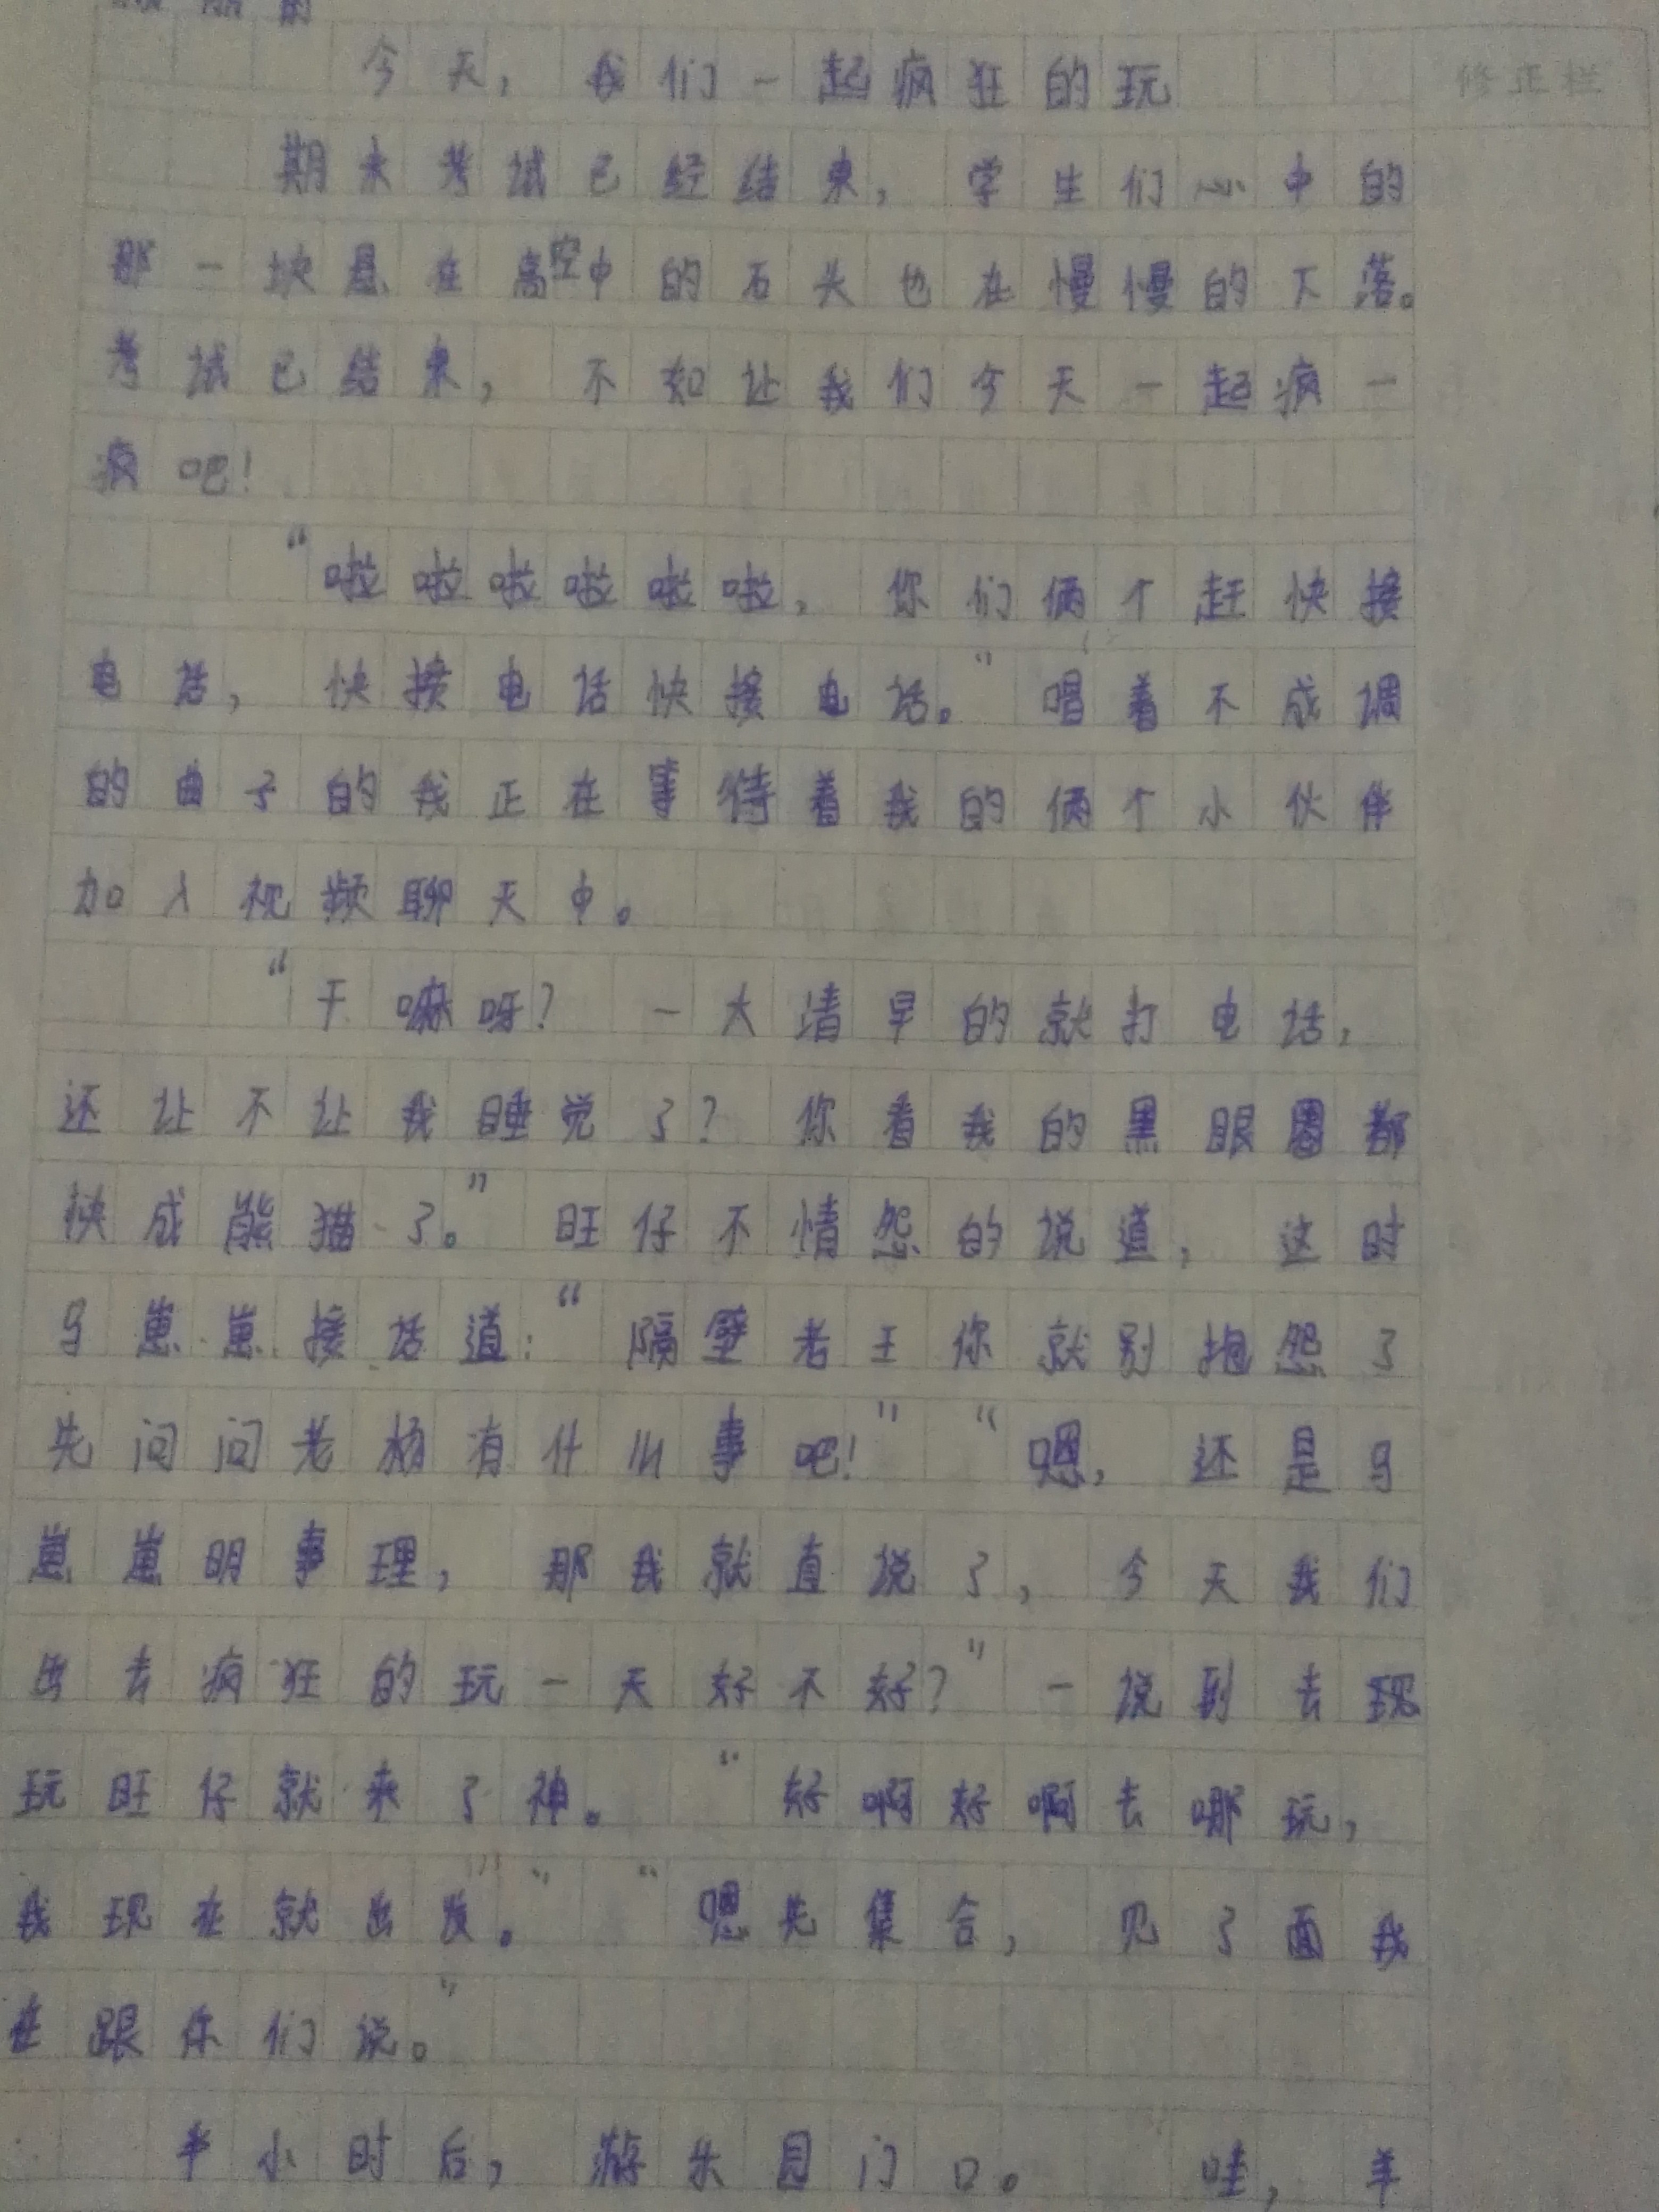 今天，我们一起疯狂的玩
修正栏
期末考试已经结束，学生们心中的
那一块悬在高空中的石头也在慢慢的下落。
考试已结束，不如让我们今天一起疯一
疯吧！
“啦啦啦啦啦啦，你们俩个赶快接
电话，快接电话快接电话。”唱着不成调
的曲子的我正在等待着我的俩个小伙伴
加入视频聊天中。
“干嘛呀？一大清早的就打电话，
还让不让我睡觉了？你看我的黑眼圈都
快成熊猫了。”旺仔不情怨的说道，这时
乌崽崽接话道：“隔壁老王你就别抱怨了
先问问老杨有什么事吧！”“嗯，还是乌
崽崽明事理，那我就直说了，今天我们
出去疯狂的玩一天好不好？”一说到去现
玩旺仔就来了神。“好啊好啊去哪玩，
我现在就出发。”“嗯先集合，见了面我
在跟你们说。”
半小时后，游乐园门口。哇，羊